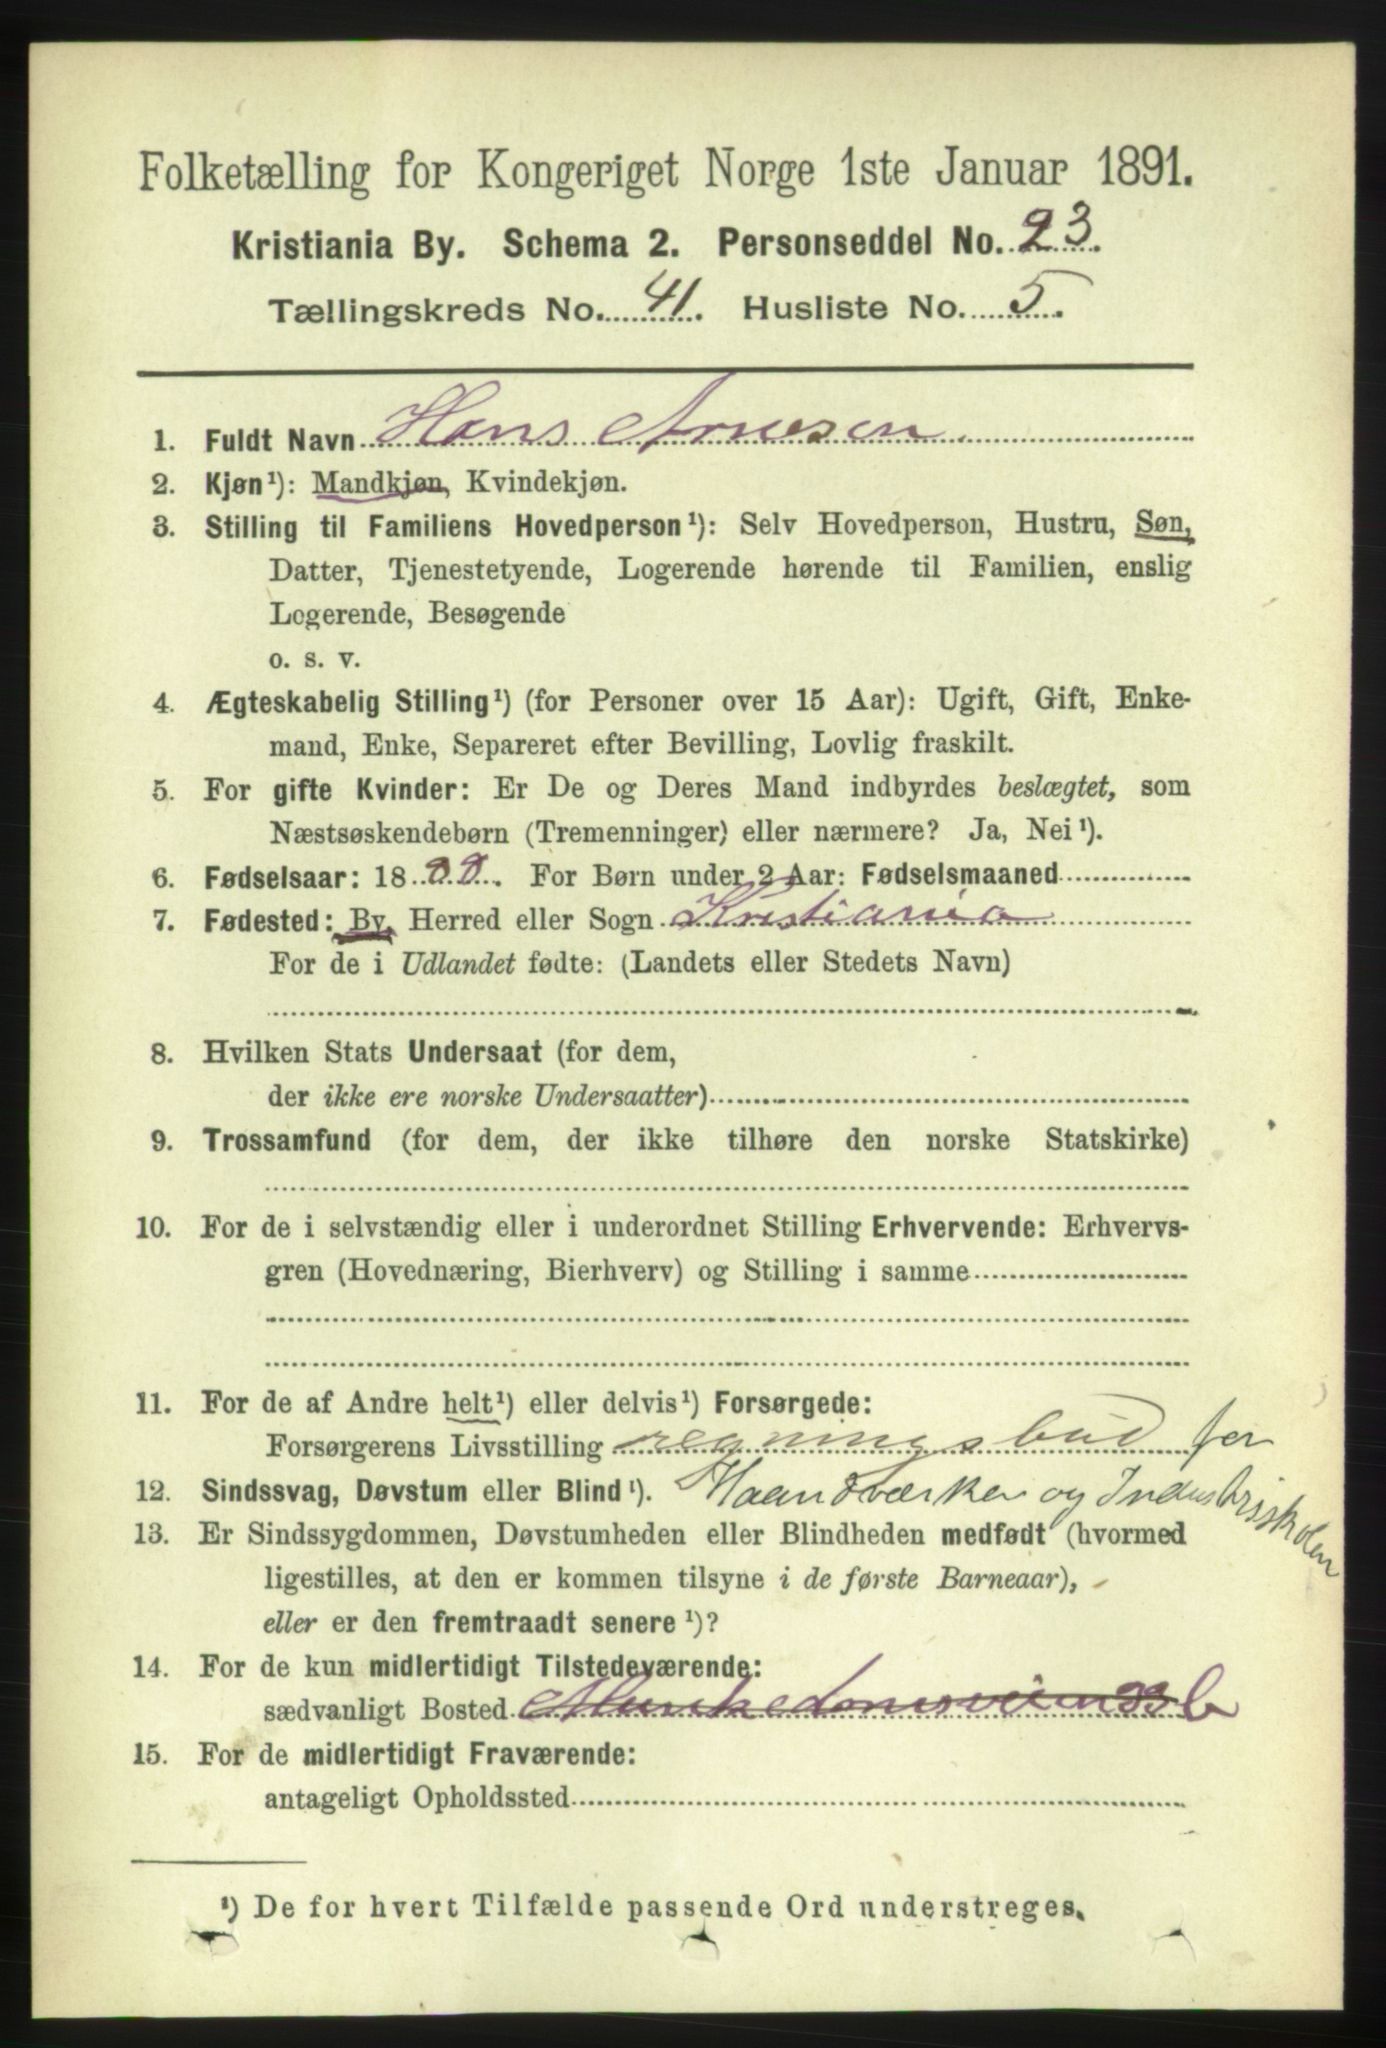 Folketælling for Kongeriget Norge 1ste Januar 1891.
Kristiania By. Schema 2. Personseddel No. 23.
Tællingskreds No. 41. Husliste No. 5.
1. Fuldt Navn Hans Arnesen
2. Kjøn¹): Mandkjøn, Kvindekjøn.
3. Stilling til Familiens Hovedperson¹): Selv Hovedperson, Hustru, Søn,
Datter, Tjenestetyende, Logerende hørende til Familien, enslig
Logerende, Besøgende
o. s. v.
4. Ægteskabelig Stilling¹) (for Personer over 15 Aar): Ugift, Gift, Enke-
mand, Enke, Separeret efter Bevilling, Lovlig fraskilt.
5. For gifte Kvinder: Er De og Deres Mand indbyrdes beslægtet, som
Næstsøskendebørn (Tremenninger) eller nærmere? Ja, Nei¹).
6. Fødselsaar: 18 . For Børn under 2 Aar: Fødselsmaaned
7. Fødested: By, Herred eller Sogn Kristiania
For de i Udlandet fødte: (Landets eller Stedets Navn)
8. Hvilken Stats Undersaat (for dem,
der ikke ere norske Undersaatter)
9. Trossamfund (for dem, der ikke tilhøre den norske Statskirke)
10. For de i selvstændig eller i underordnet Stilling Erhvervende: Erhvervs-
gren (Hovednæring, Bierhverv) og Stilling i samme
11. For de af Andre helt¹) eller delvis¹) Forsørgede:
Forsørgerens Livsstilling regningsbud for
12. Sindssvag, Døvstum eller Blind¹). Haandværker og Industriskolen
13. Er Sindssygdommen, Døvstumheden eller Blindheden medfødt (hvormed
ligestilles, at den er kommen tilsyne i de første Barneaar),
eller er den fremtraadt senere¹)?
14. For de kun midlertidigt Tilstedeværende:
sædvanligt Bosted
15. For de midlertidigt Fraværende:
antageligt Opholdssted
¹) De for hvert Tilfælde passende Ord understreges.